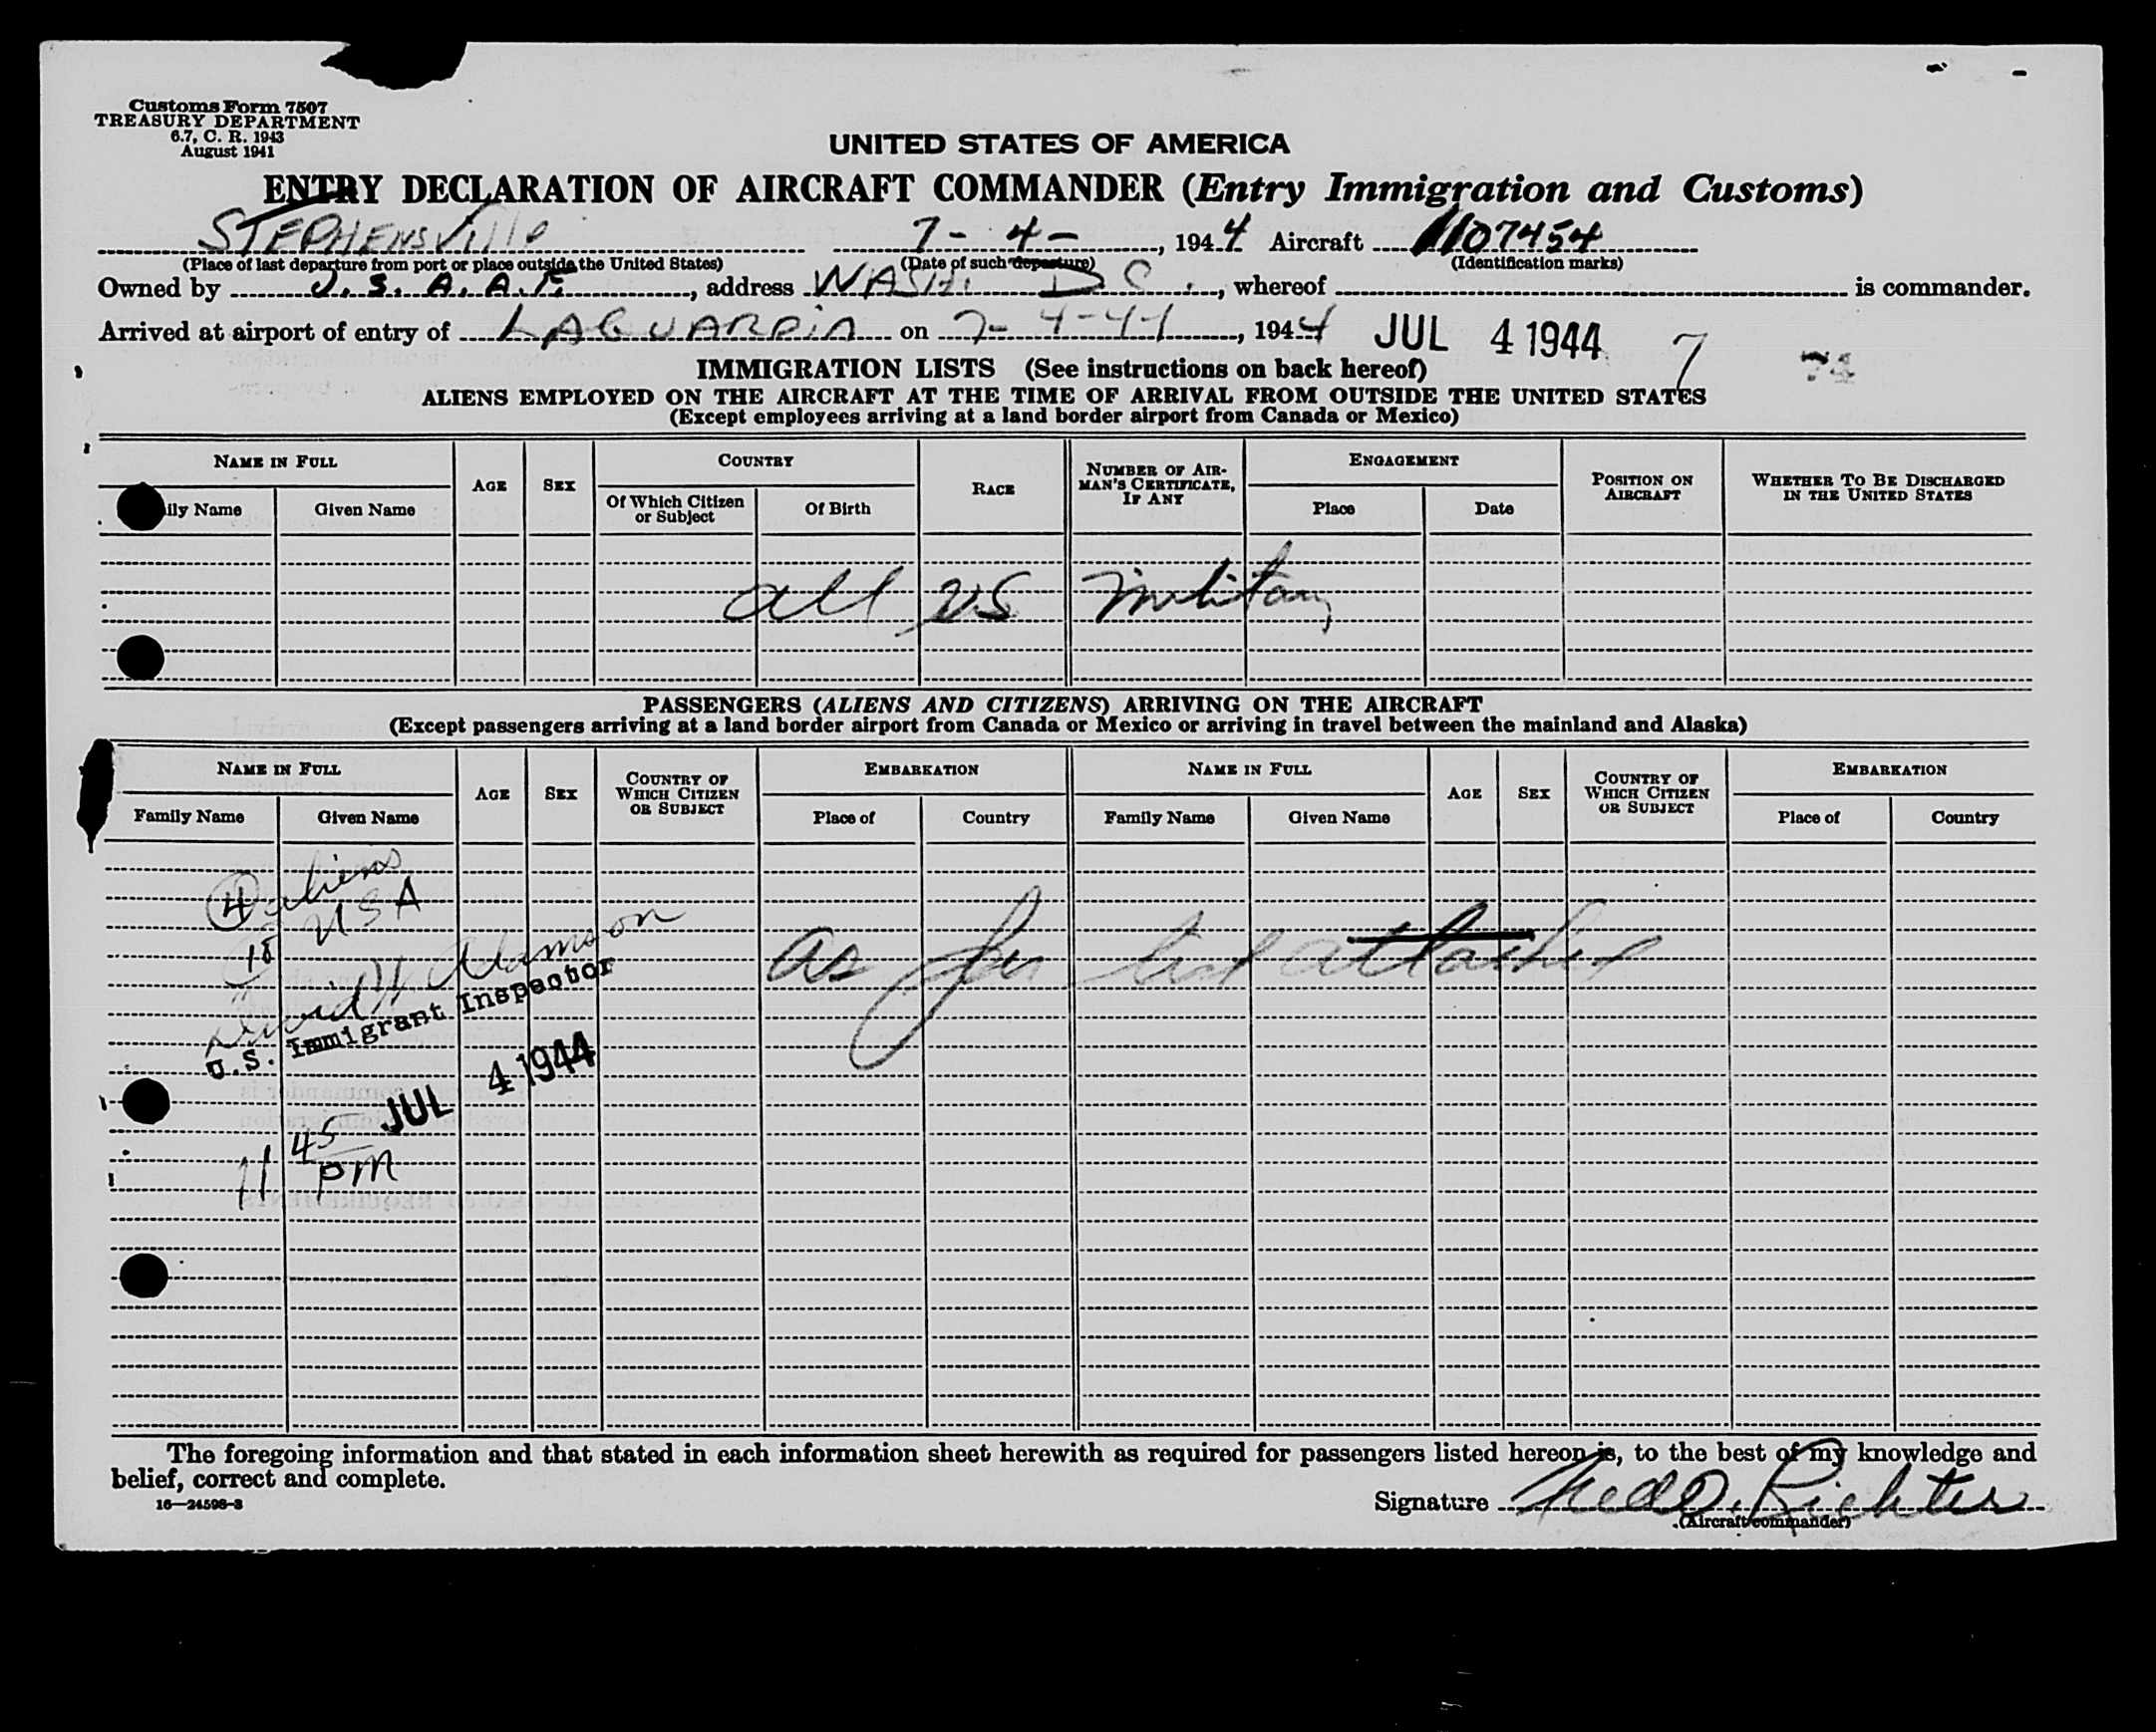 Customs Form 7507
TREASURY DEPARTMENT
6.7, C. R. 1943
August 1941
UNITED STATES OF AMERICA
ENTRY DECLARATION OF AIRCRAFT COMMANDER (Entry Immigration and Customs)
STEPHENSVIlle 7-4-, 1944 Aircraft 107454
(Place of last departure from port or place outside the United States) (Date of such departure) (Identification marks)
Owned by U.S.A.A.F., address WASH. D C., whereof is commander.
Arrived at airport of entry of LAGUARDIA on 7-4-44, 1944 JUL 4 1944 7 74
IMMIGRATION LISTS (See instructions on back hereof)
ALIENS EMPLOYED ON THE AIRCRAFT AT THE TIME OF ARRIVAL FROM OUTSIDE THE UNITED STATES
(Except employees arriving at a land border airport from Canada or Mexico)
NAME IN FULL AGE SEX COUNTRY RACE NUMBER OF AIRMAN'S CERTIFICATE, IF ANY ENGAGEMENT POSITION ON AIRCRAFT WHETHER TO BE DISCHARGED IN THE UNITED STATES
ily Name Given Name Of Which Citizen or Subject Of Birth Place Date
all US military
PASSENGERS (ALIENS AND CITIZENS) ARRIVING ON THE AIRCRAFT
(Except passengers arriving at a land border airport from Canada or Mexico or arriving in travel between the mainland and Alaska)
NAME IN FULL AGE SEX COUNTRY OF WHICH CITIZEN OR SUBJECT EMBARKATION NAME IN FULL AGE SEX COUNTRY OF WHICH CITIZEN OR SUBJECT EMBARKATION
Family Name Given Name Place of Country Family Name Given Name Place of Country
4 aliens
18 USA
as per list attached
David H. Adamson
U.S. Immigrant Inspector
JUL 4 1944
11 45 pm
The foregoing information and that stated in each information sheet herewith as required for passengers listed hereon is, to the best of my knowledge and
belief, correct and complete.
16—24598-3
Signature Richter
(Aircraft commander)